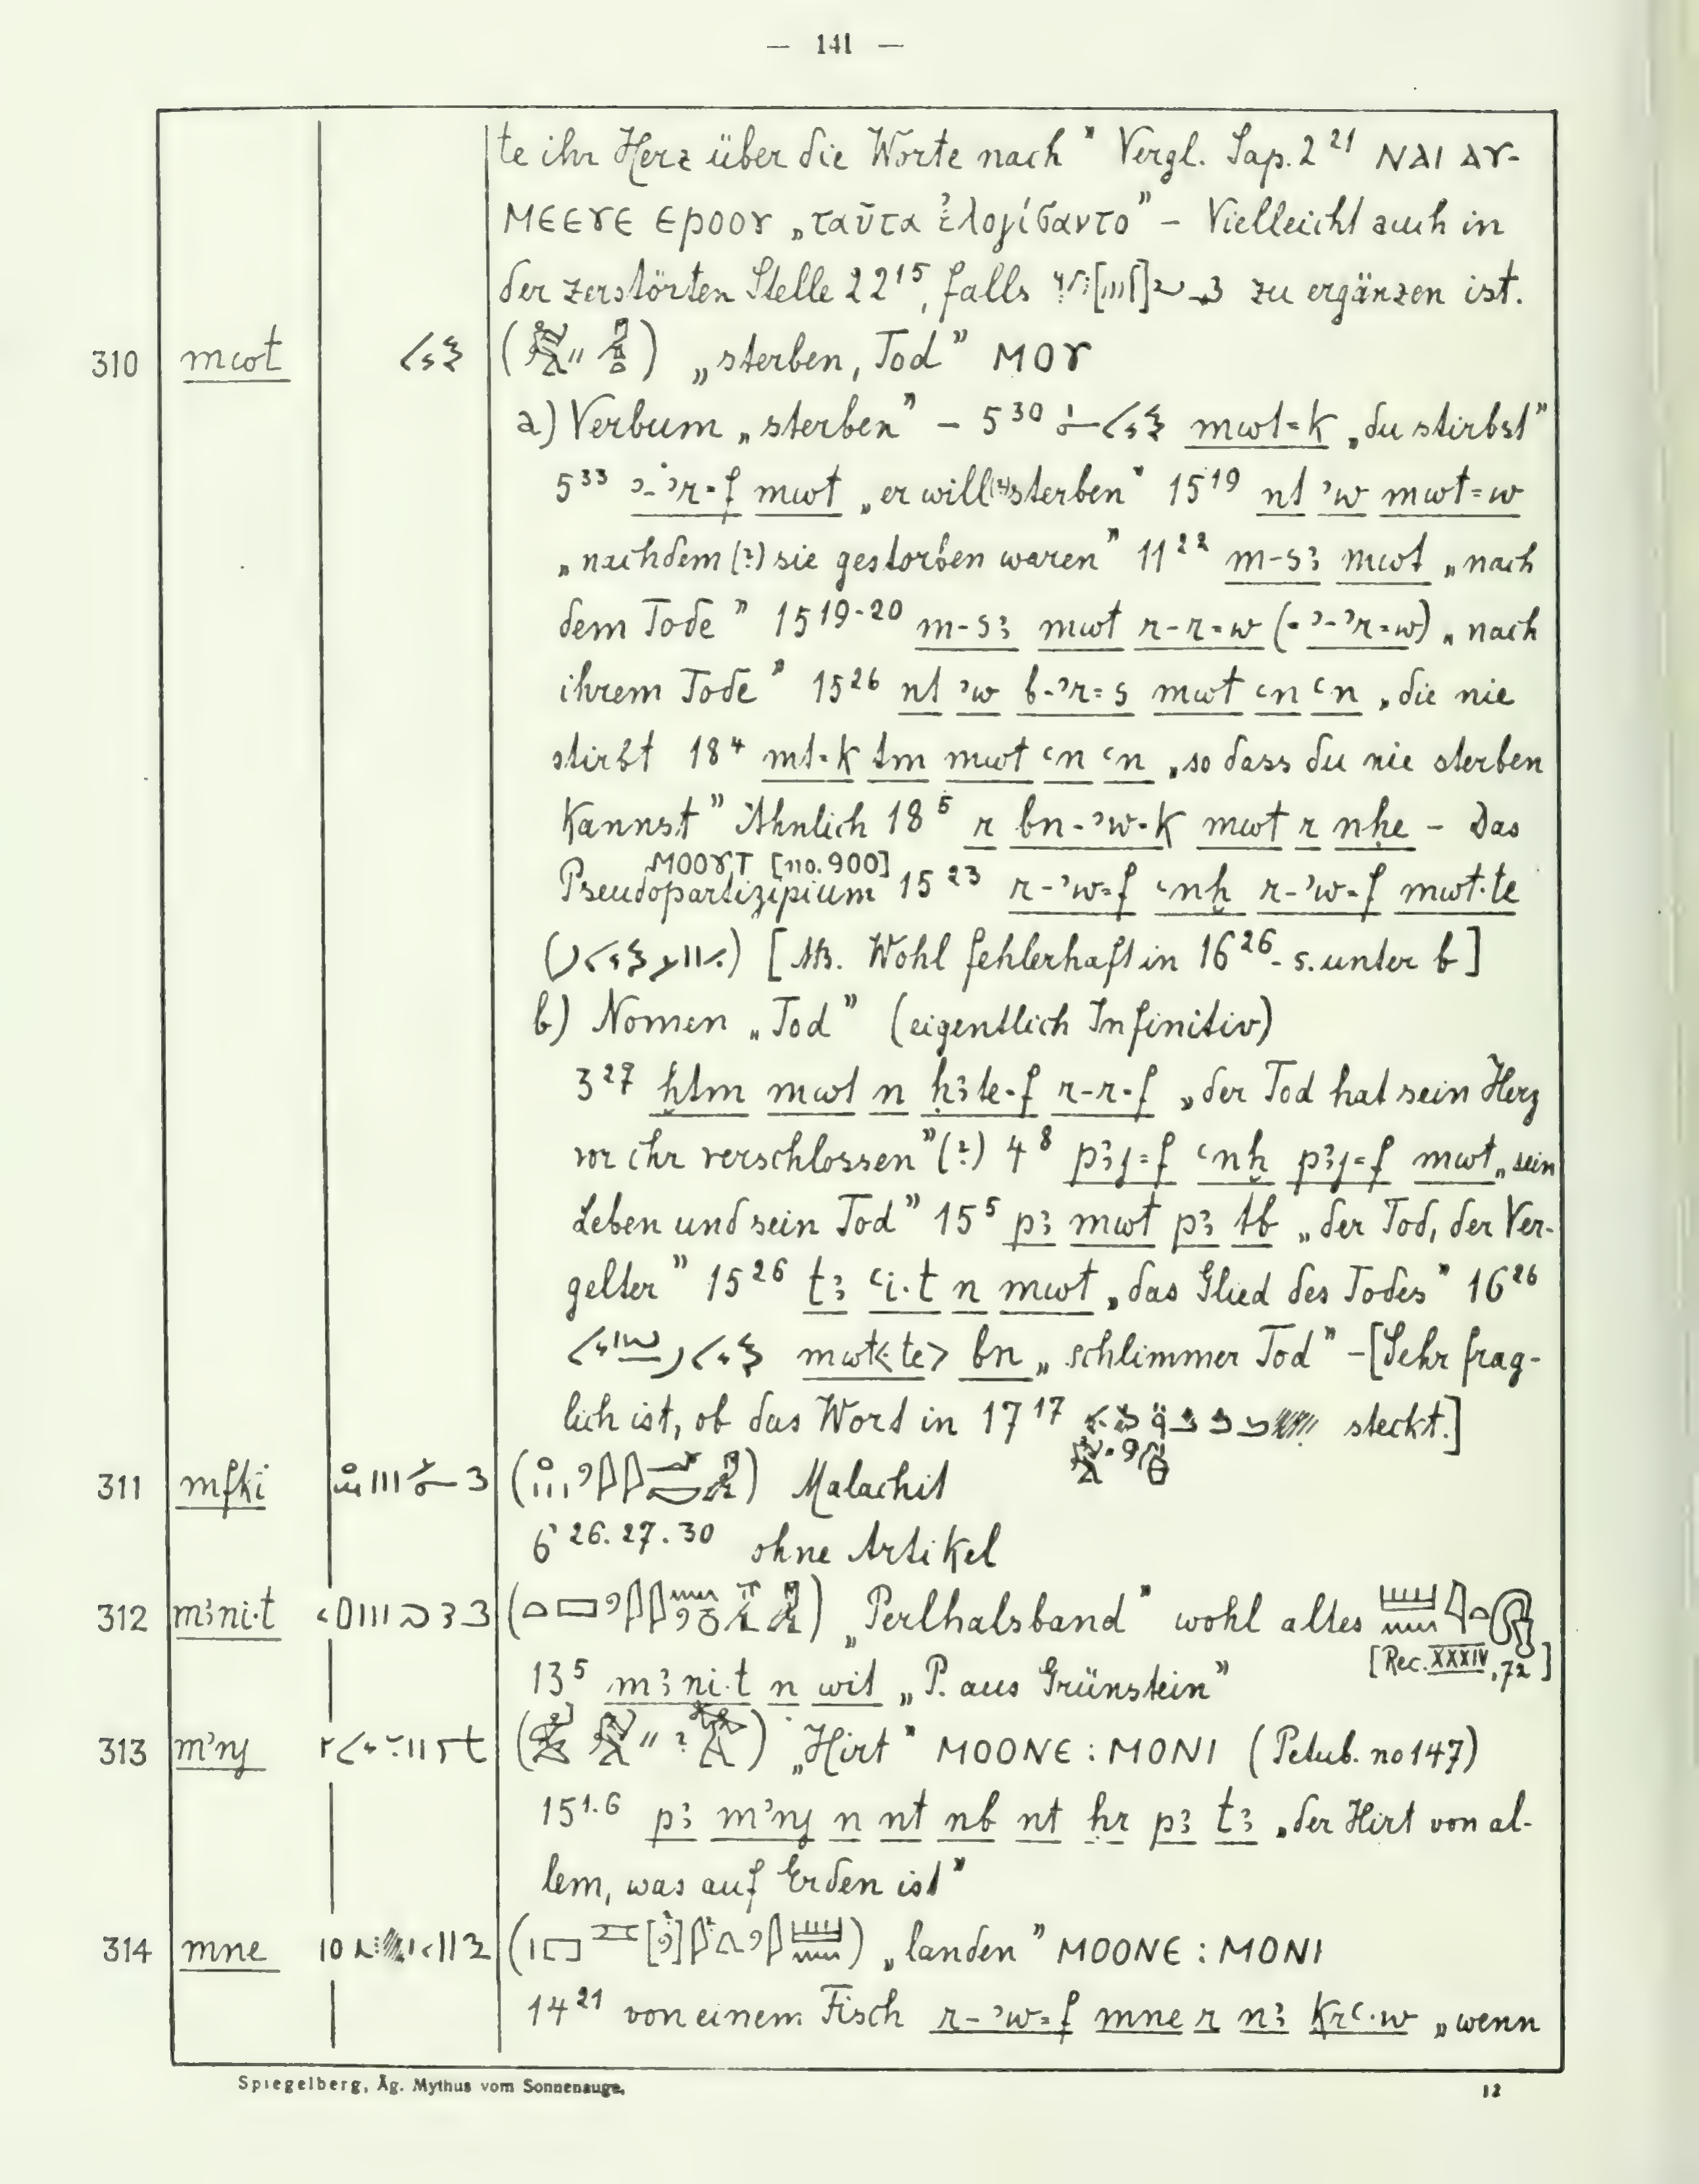 — 141 —
te ihr Herz über die Worte nach" Vergl. Sap. 2²¹ ⲚⲀⲒ ⲀⲨ-
ⲘⲈⲈⲨⲈ ⲈⲢⲞⲞⲨ „ταῦτα ἐλογίσαντο" – Vielleicht auch in
der zerstörten Stelle 22¹⁵, falls zu ergänzen ist.
310 mwt ( ) „sterben, Tod" ⲘⲞⲨ
a) Verbum „sterben" – 5³⁰ mwt=k „du stirbst"
5³³ ꜣ-ꜣr=f mwt „er will(?) sterben" 15¹⁹ nt ꜣw mwt=w
„nachdem (?) sie gestorben waren" 11²² m-sꜣ mwt „nach
dem Tode" 15¹⁹⁻²⁰ m-sꜣ mwt r-r=w (= ꜣ-ꜣr=w) „nach
ihrem Tode" 15²⁶ nt ꜣw b-ꜣr=s mwt ꜥn ꜥn „die nie
stirbt 18⁴ mt=k tm mwt ꜥn ꜥn „so dass du nie sterben
kannst" Ähnlich 18⁵ r bn-ꜣw=k mwt r nḥe – Das
ⲘⲞⲞⲨⲦ [no. 900]
Pseudopartizipium 15²³ r-ꜣw=f ꜥnḫ r-ꜣw=f mwt·te
( ) [NB. Wohl fehlerhaft in 16²⁶ - s. unter b]
b) Nomen „Tod" (eigentlich Infinitiv)
3²⁷ ḫtm mwt n ḥꜣte=f r-r=f „der Tod hat sein Herz
vor ihr verschlossen" (?) 4⁸ pꜣj=f ꜥnḫ pꜣj=f mwt „sein
Leben und sein Tod" 15⁵ pꜣ mwt pꜣ tb „der Tod, der Ver-
gelter" 15²⁶ tꜣ ꜥi·t n mwt „das Glied des Todes" 16²⁶
mwt<te> bn „schlimmer Tod" – [Sehr frag-
lich ist, ob das Wort in 17¹⁷ steckt.]
311 mfki ( ) Malachit
6²⁶·²⁷·³⁰ ohne Artikel
312 mꜣni·t ( ) „Perlhalsband" wohl altes
[Rec. XXXIV, 72]
13⁵ mꜣni·t n wit „P. aus Grünstein"
313 mꜣnj ( ) „Hirt" ⲘⲞⲞⲚⲈ : ⲘⲞⲚⲒ (Petub. no 147)
15¹·⁶ pꜣ mꜣnj n nt nb nt ḥr pꜣ tꜣ „der Hirt von al-
lem, was auf Erden ist"
314 mne ( ) „landen" ⲘⲞⲞⲚⲈ : ⲘⲞⲚⲒ
14²¹ von einem Fisch r-ꜣw=f mne r nꜣ krꜥ·w „wenn
Spiegelberg, Äg. Mythus vom Sonnenauge.
12